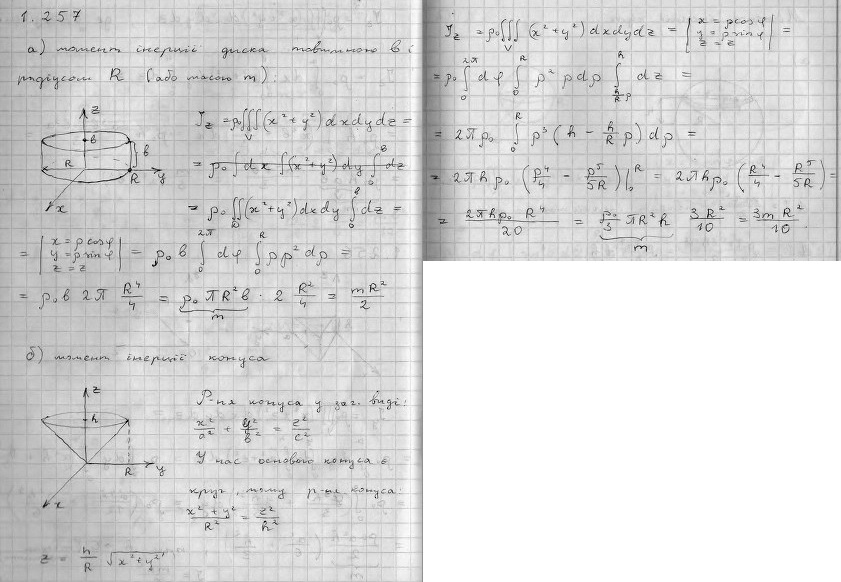 1.257
а) момент інерції диска товщиною в і
радіусом R (або масою m):
z
в
R
в
R
y
x
J_z = ρ₀∭_V (x² + y²) dxdydz =
= ρ₀ ∫ dx ∫ (x² + y²) dy ∫₀^в dz
= ρ₀ ∬_D (x² + y²) dxdy ∫₀^в dz =
= | x = ρ cos φ, y = ρ sin φ, z = z | = ρ₀ в ∫₀^{2π} dφ ∫₀^R ρρ² dρ =
= ρ₀ в 2π R⁴/4 = ρ₀ πR²в · 2 R²/4 = mR²/2
m
б) момент інерції конуса
z
h
R
y
x
Р-ня конуса у заг. виді:
x²/a² + y²/b² = z²/c²
У нас основою конуса є
круг, тому р-ня конуса:
(x² + y²)/R² = z²/h²
z = h/R √(x² + y²)
J_z = ρ₀∭_V (x² + y²) dxdydz = | x = ρ cos φ, y = ρ sin φ, z = z | =
= ρ₀ ∫₀^{2π} dφ ∫₀^R ρ² ρ dρ ∫_{h/R ρ}^h dz =
= 2πρ₀ ∫₀^R ρ³ (h − h/R ρ) dρ =
= 2πhρ₀ (ρ⁴/4 − ρ⁵/5R)|₀^R = 2πhρ₀ (R⁴/4 − R⁵/5R) =
= 2πhρ₀ R⁴/20 = ρ₀/3 πR²h 3R²/10 = 3mR²/10
m